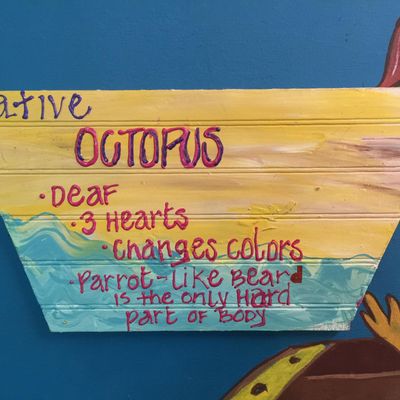 ative
OCTOPUS
• Deaf
• 3 Hearts
• Changes Colors
• Parrot-Like Beard
is the only Hard
part of Body